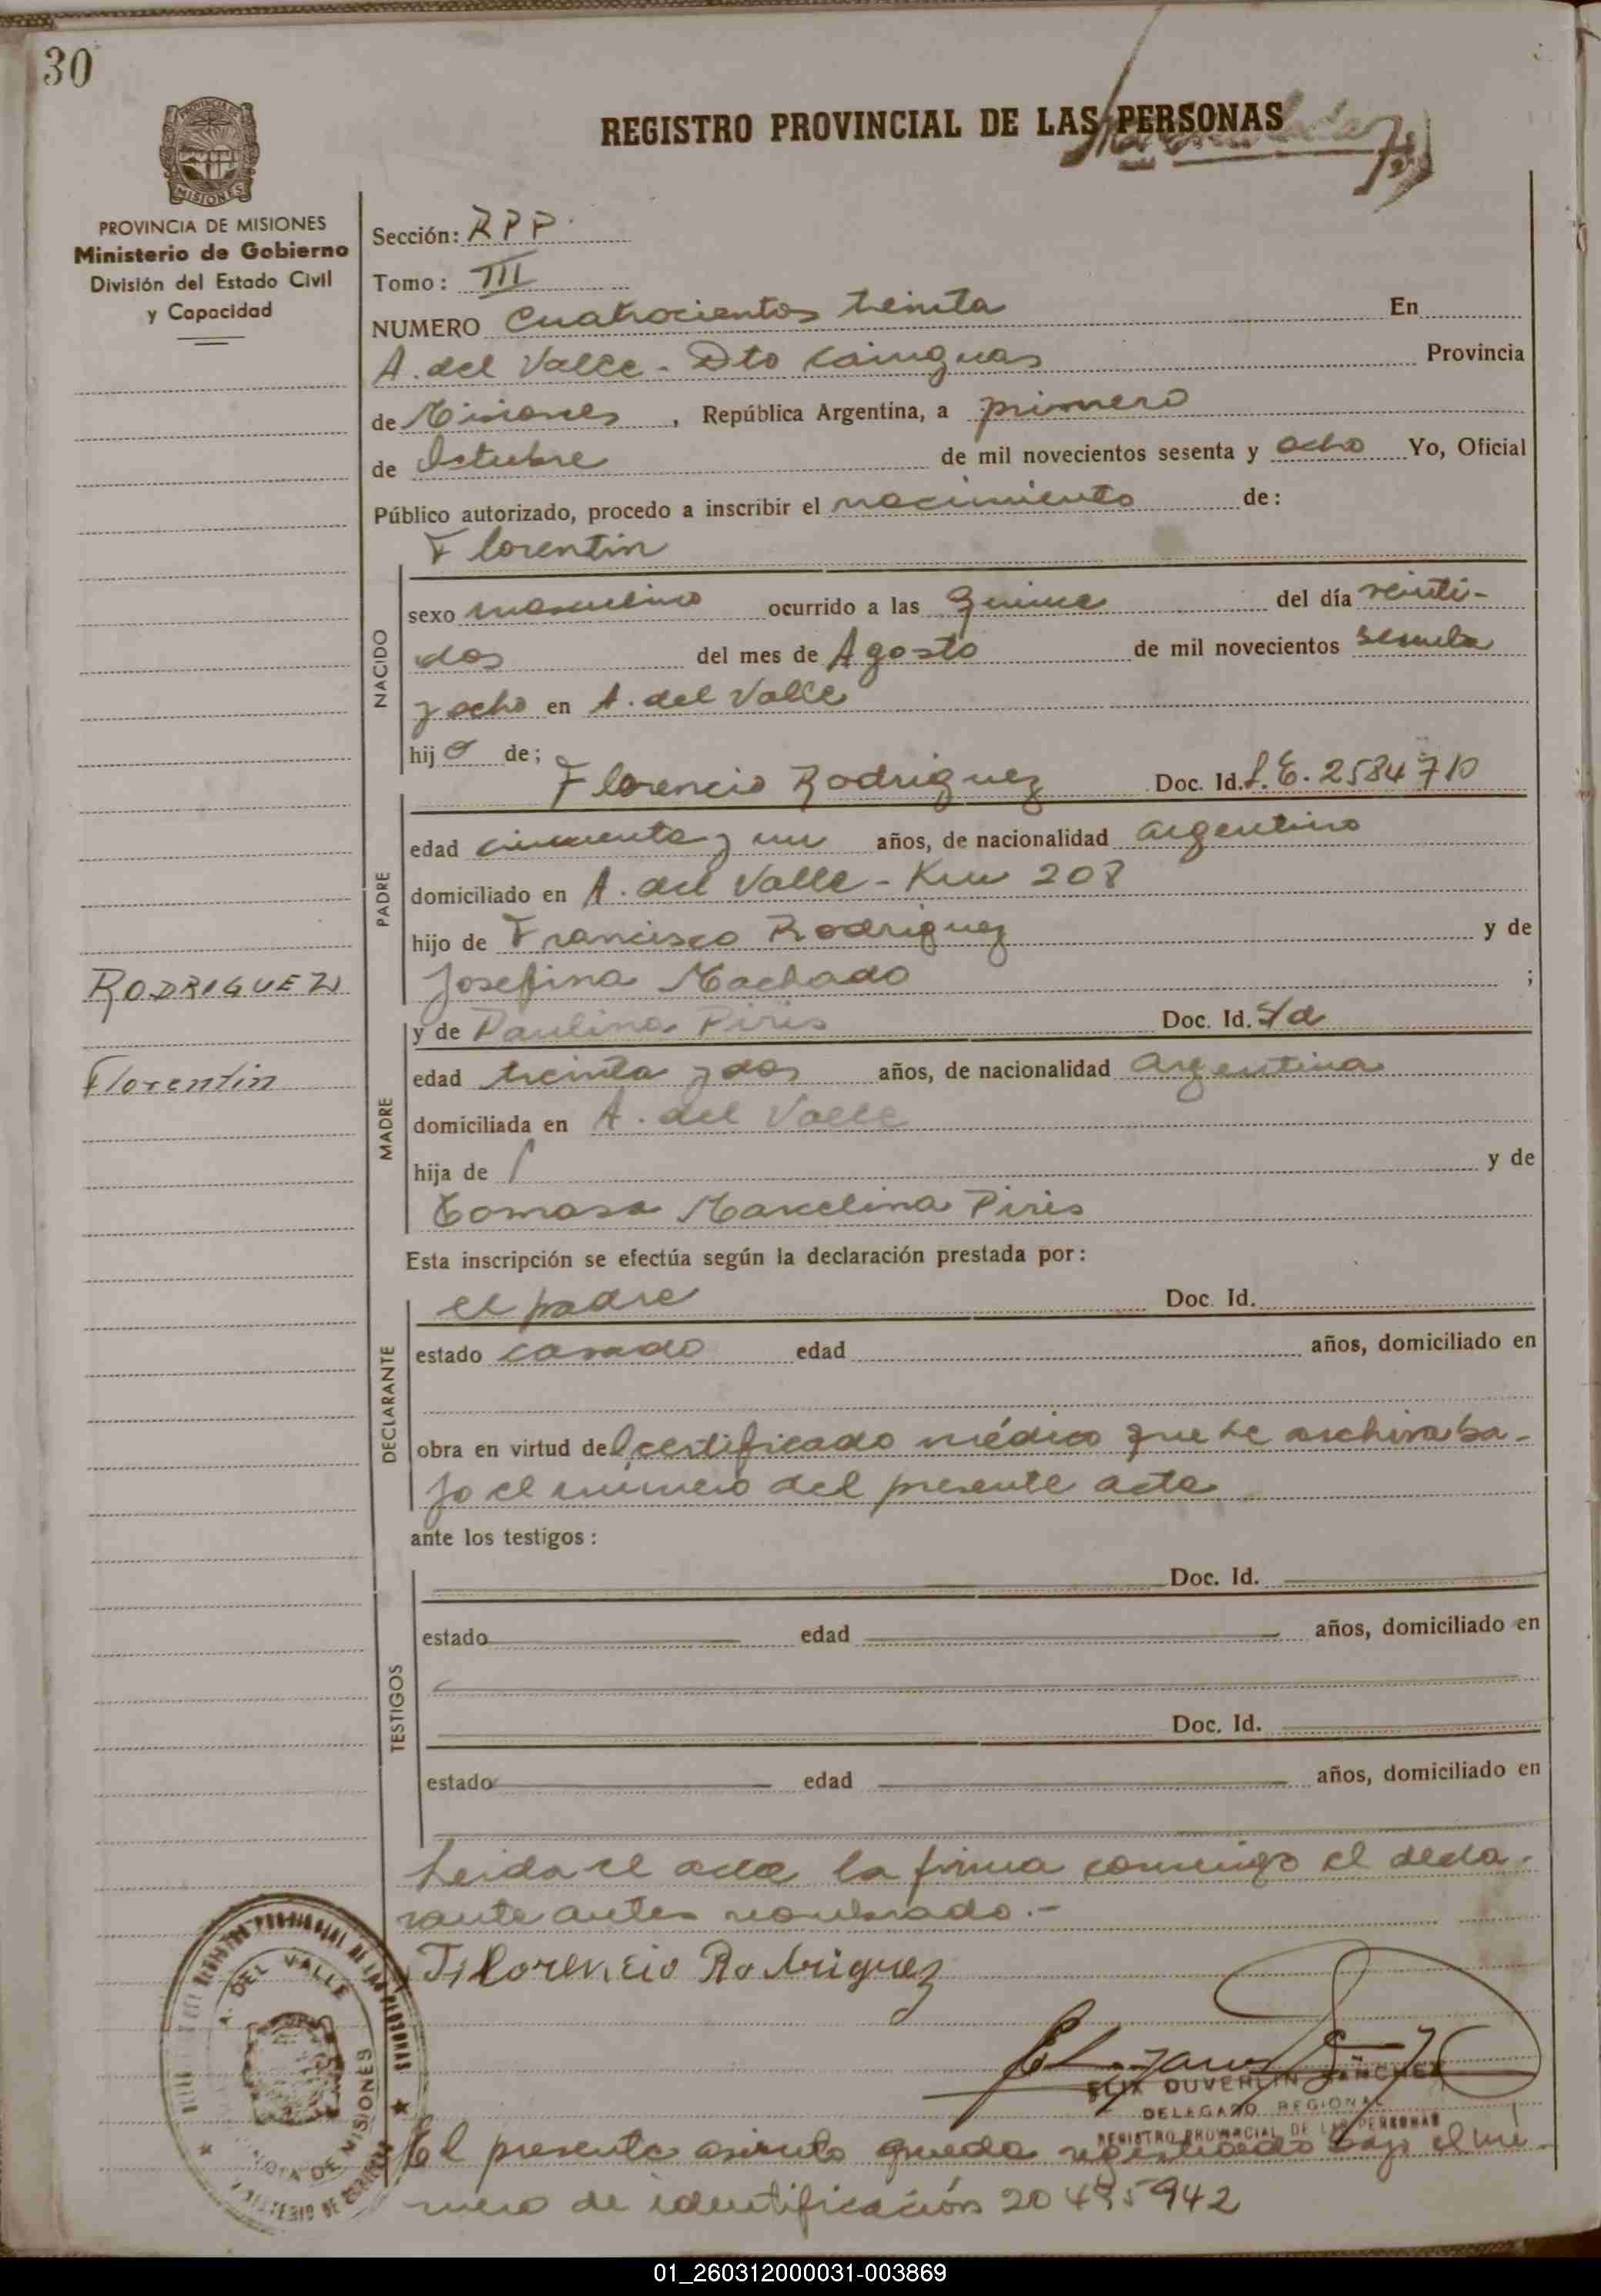 30
REGISTRO PROVINCIAL DE LAS PERSONAS
MISIONES
PROVINCIA DE MISIONES
Ministerio de Gobierno
División del Estado Civil
y Capacidad
Sección: RPP.
Tomo: III
NUMERO Cuatrocientos treinta En
A. del Valle - Dto Cainguas Provincia
de Misiones, República Argentina, a primero
de Octubre de mil novecientos sesenta y ocho Yo, Oficial
Público autorizado, procedo a inscribir el nacimiento de:
Florentin
NACIDO
sexo masculino ocurrido a las quince del día veinti-
dos del mes de Agosto de mil novecientos sesenta
y ocho en A. del Valle
hijo de;
Florencio Rodriguez Doc. Id. L.E. 2584710
PADRE
edad cincuenta y un años, de nacionalidad argentino
domiciliado en A. del Valle - Km 208
hijo de Francisco Rodriguez y de
Josefina Machado ;
RODRIGUEZ
Florentin
y de Paulina Piris Doc. Id. S/d
MADRE
edad treinta y dos años, de nacionalidad argentina
domiciliada en A. del Valle
hija de / y de
Tomasa Marcelina Piris
Esta inscripción se efectúa según la declaración prestada por:
DECLARANTE
el padre Doc. Id.
estado casado edad años, domiciliado en
obra en virtud del certificado médico que se archiva ba-
jo el numero del presente acta
ante los testigos:
TESTIGOS
Doc. Id.
estado edad años, domiciliado en
Doc. Id.
estado edad años, domiciliado en
Leida el acta la firma conmigo el decla-
rante antes nombrado.-
Florencio Rodriguez
A. DEL VALLE
MISIONES
FELIX DUVERLIN SANCHEZ
DELEGADO REGIONAL
REGISTRO PROVINCIAL DE LAS PERSONAS
El presente asiento queda registrado bajo el nú-
mero de identificación 20495942
01_260312000031-003869